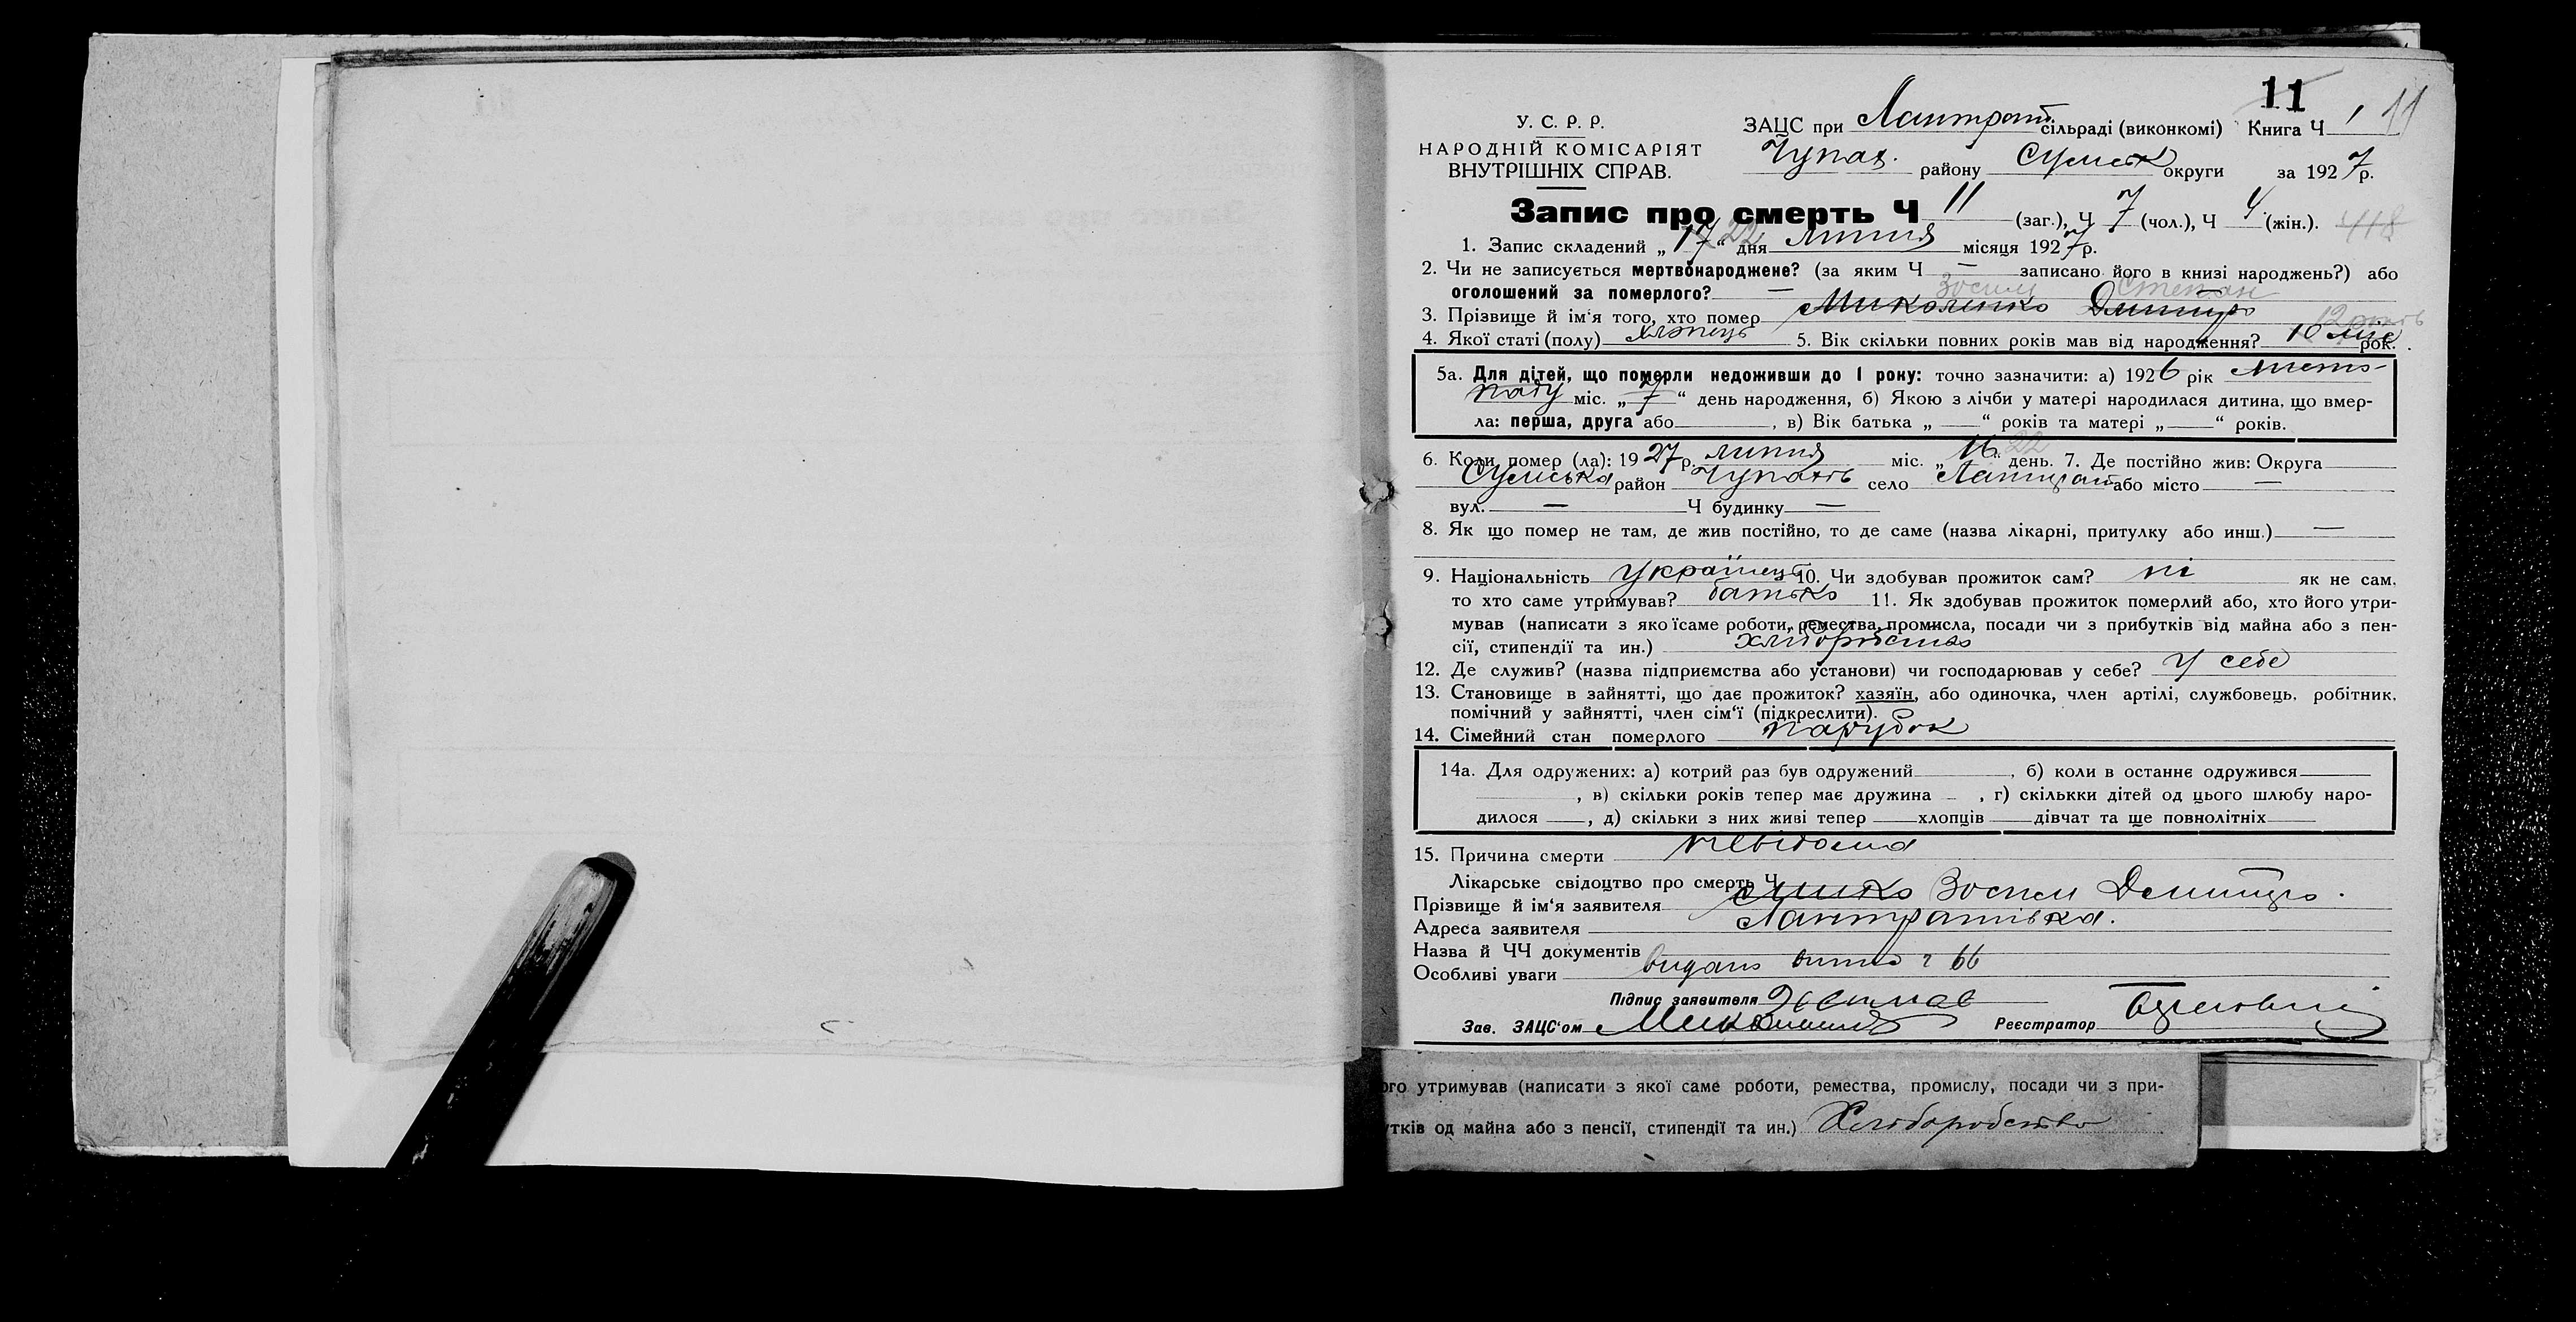 11
У. С. Р. Р.
ЗАЦС при Лантрат сільраді (виконкомі) Книга Ч 1 11
НАРОДНІЙ КОМІСАРІЯТ
ВНУТРІШНІХ СПРАВ.
Чупах. району Сумськ округи за 1927 р.
Запис про смерть Ч 11 (заг.), Ч 7 (чол.), Ч 4 (жін.).
1. Запис складений „17“ 22 дня липня місяця 1927 р.
2. Чи не записується мертвонароджене? (за яким Ч — записано його в книзі народжень?) або
оголошений за померлого? —
Зосим Степан
3. Прізвище й ім‘я того, хто помер Миколенко Дмитро
4. Якої статі (полу) хлопець 5. Вік скільки повних років мав від народження? 10 міс рок.
5а. Для дітей, що померли недоживши до 1 року: точно зазначити: а) 1926 рік листо-
паду міс. „7“ день народження, б) Якою з лічби у матері народилася дитина, що вмер-
ла: перша, друга або , в) Вік батька „—“ років та матері „—“ років.
6. Коли помер (ла): 1927 р. липня міс. „16“ 22 день. 7. Де постійно жив: Округа
Сумська район Чупахів село Лантрат або місто —
вул. — Ч будинку —
8. Як що помер не там, де жив постійно, то де саме (назва лікарні, притулку або инш.) —
9. Національність українець 10. Чи здобував прожиток сам? ні як не сам,
то хто саме утримував? батько 11. Як здобував прожиток померлий або, хто його утри-
мував (написати з яко їсаме роботи, ремества, промисла, посади чи з прибутків від майна або з пен-
сії, стипендії та ин.) хліборобство
12. Де служив? (назва підприємства або установи) чи господарював у себе? У себе
13. Становище в зайнятті, що дає прожиток? хазяїн, або одиночка, член артілі, службовець, робітник,
помічний у зайнятті, член сім‘ї (підкреслити).
14. Сімейний стан померлого парубок
14а. Для одружених: а) котрий раз був одружений , б) коли в останнє одружився
, в) скільки років тепер має дружина — , г) скількки дітей од цього шлюбу наро-
дилося — , д) скільки з них живі тепер — хлопців — дівчат та ще повнолітніх
15. Причина смерти невідома
Лікарське свідоцтво про смерть Ч
Прізвище й ім‘я заявителя Мико Зосим Дмитро.
Адреса заявителя Лантратівка.
Назва й ЧЧ документів
Особливі уваги видано 66
Підпис заявителя
Зав. ЗАЦС‘ом Реєстратор
ого утримував (написати з якої саме роботи, ремества, промислу, посади чи з при-
тків од майна або з пенсії, стипендії та ин.) Хліборобство